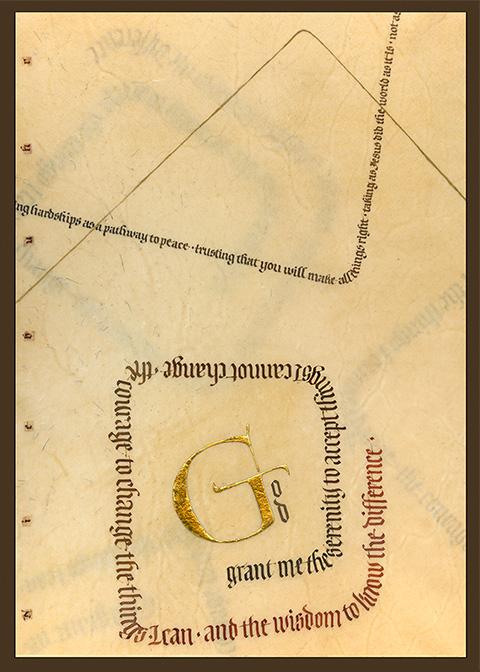 ng hardships as a pathway to peace · trusting that you will make all things right · taking as Jesus did the world as it is · not as
God
grant me the serenity to accept things I cannot change · the courage to change · the things I can · and the wisdom to know the difference ·